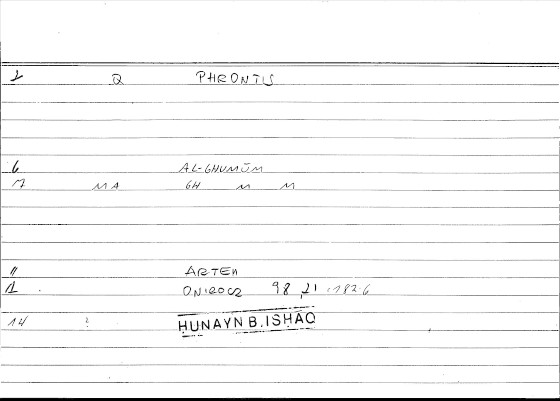 1 Q PHRONTIS
6 AL-GHUMŪM
7 MA GH M M
11 ARTEM
12 ONIROCR 98,21 :182.6
14 ? ḤUNAYN B. ISḤĀQ